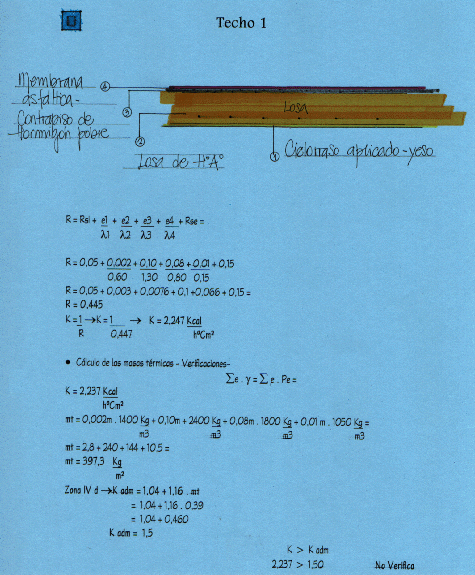 Techo 1
Membrana asfaltica-
④
③
Contrapiso de Hormigon pobre
②
Losa
Losa de H°A°
① Cielorraso aplicado-yeso
R = Rsi + e1 + e2 + e3 + e4 + Rse =
λ1 λ2 λ3 λ4
R = 0,05 + 0,002 + 0,10 + 0,08 + 0,01 + 0,15
0,60 1,30 0,80 0,15
R = 0,05 + 0,003 + 0,0076 + 0,1 + 0,066 + 0,15 =
R = 0,445
K = 1 → K = 1 → K = 2,247 Kcal
R 0,447 h°Cm²
• Cálculo de las masas térmicas - Verificaciones-
∑e . γ = ∑ e . Pe =
K = 2,237 Kcal
h°Cm²
mt = 0,002m . 1400 Kg + 0,10m + 2400 Kg + 0,08m . 1800 Kg + 0,01 m . 1050 Kg =
m3 m3 m3 m3
mt = 2,8 + 240 + 144 + 10.5 =
mt = 397,3 Kg
m²
Zona IV d → K adm = 1,04 + 1,16 . mt
= 1,04 + 1,16 . 0,39
= 1,04 + 0,460
K adm = 1,5
K > K adm
2,237 > 1,50 No Verifica